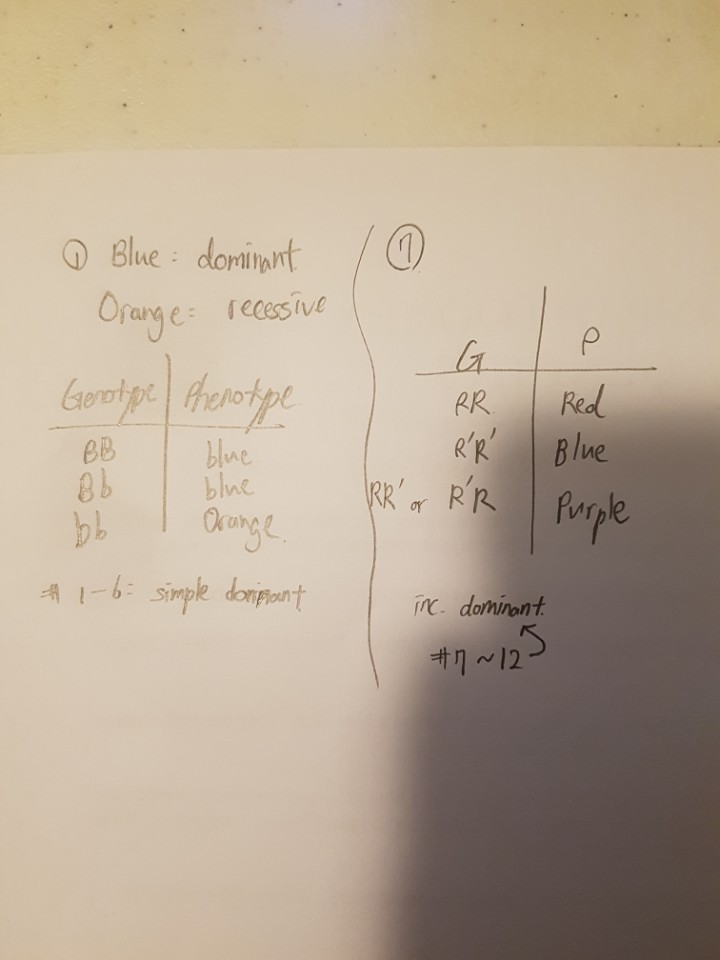 ① Blue: dominant
Orange: recessive
Genotype Phenotype
BB blue
Bb blue
bb Orange.
# 1-6: simple dominant
⑦
G P
RR Red
R'R' Blue
RR' or R'R Purple
inc. dominant.
#7~12